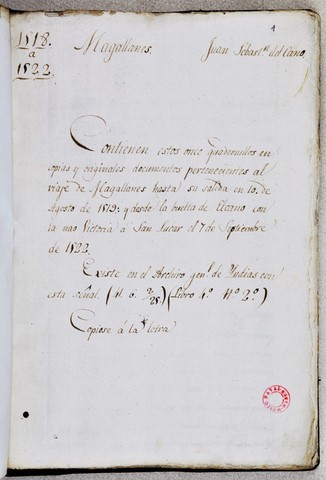 1
1518.
a
1522.
Magallanes.
Juan Sebast.n del Cano,
Contienen estos once quadernillos en
copias y originales documentos pertenecientes al
viaje de Magallanes hasta su salida en 10 de
Agosto de 1519: y desde la buelta de Elcano con
la nao Victoria á San Lucar el 7 de Septiembre
de 1522.
Existe en el Archivo gen.l de Yndias con
esta señal (Al 6. 2/25) (Libro 4.º N.º 2.º)
Copiose á la letra